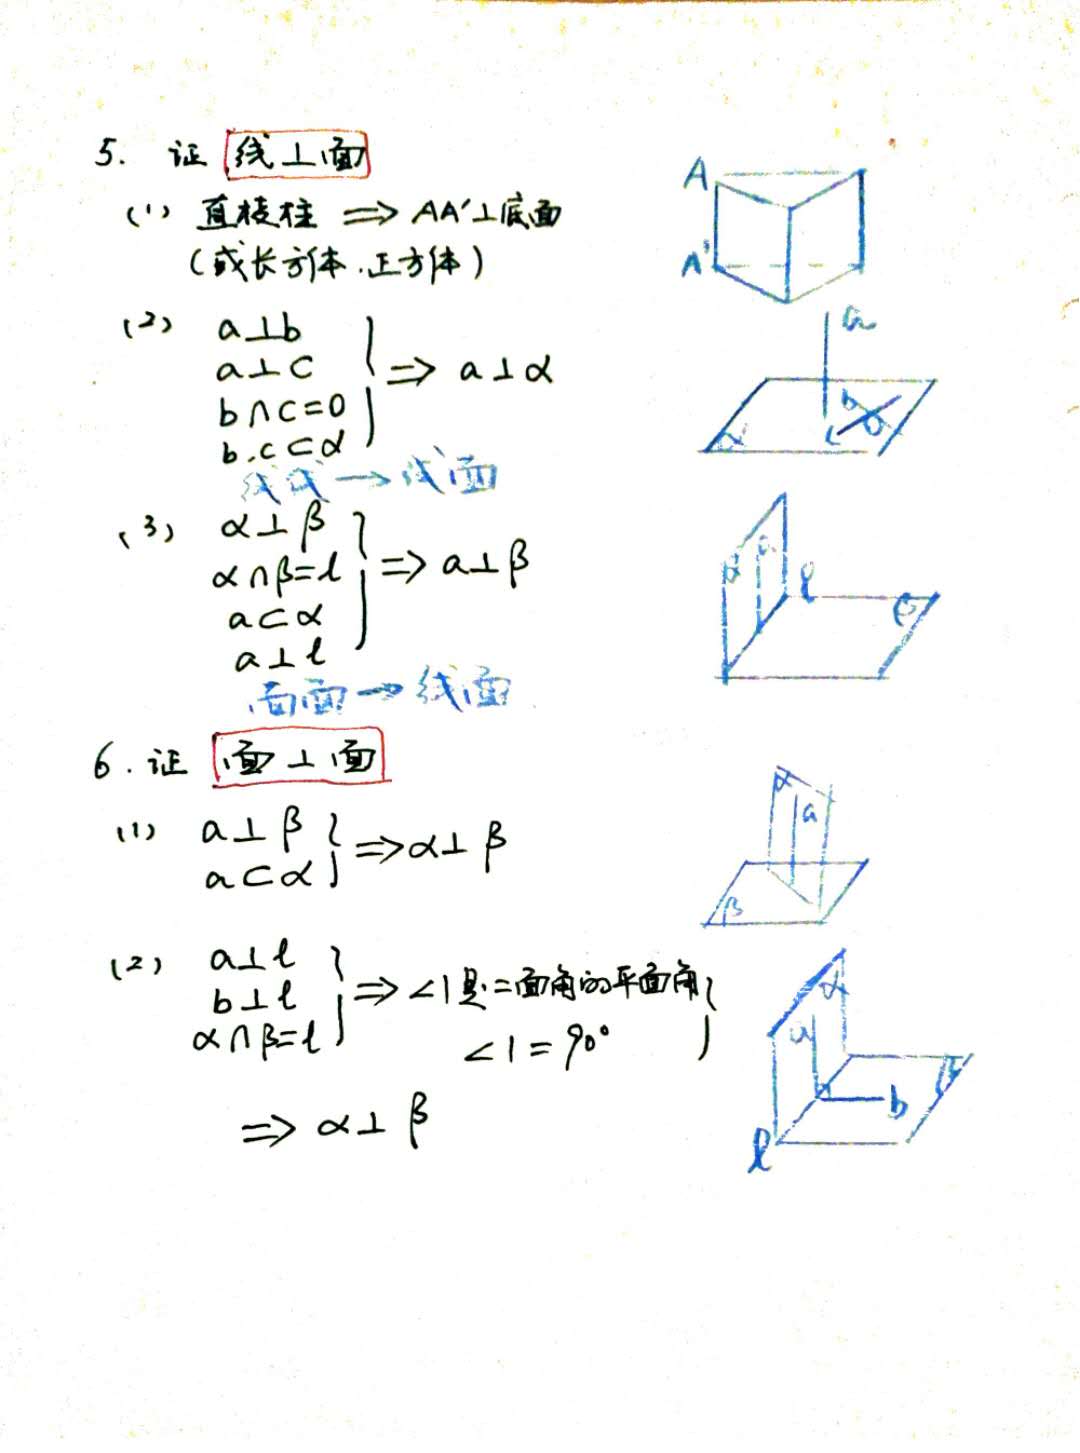 5. 证 线⊥面
(1) 直棱柱 ⇒ AA'⊥底面
(或长方体.正方体)
A
A'
(2) a⊥b
a⊥c
b∩c=0
b.c⊂α
⇒ a⊥α
线线→线面
a
b
c
0
α
(3) α⊥β
α∩β=l
a⊂α
a⊥l
⇒ a⊥β
面面→线面
α
a
l
β
6. 证 面⊥面
(1) a⊥β
a⊂α
⇒ α⊥β
α
a
β
(2) a⊥l
b⊥l
α∩β=l
⇒ ∠1是二面角的平面角
∠1=90°
⇒ α⊥β
α
a
b
l